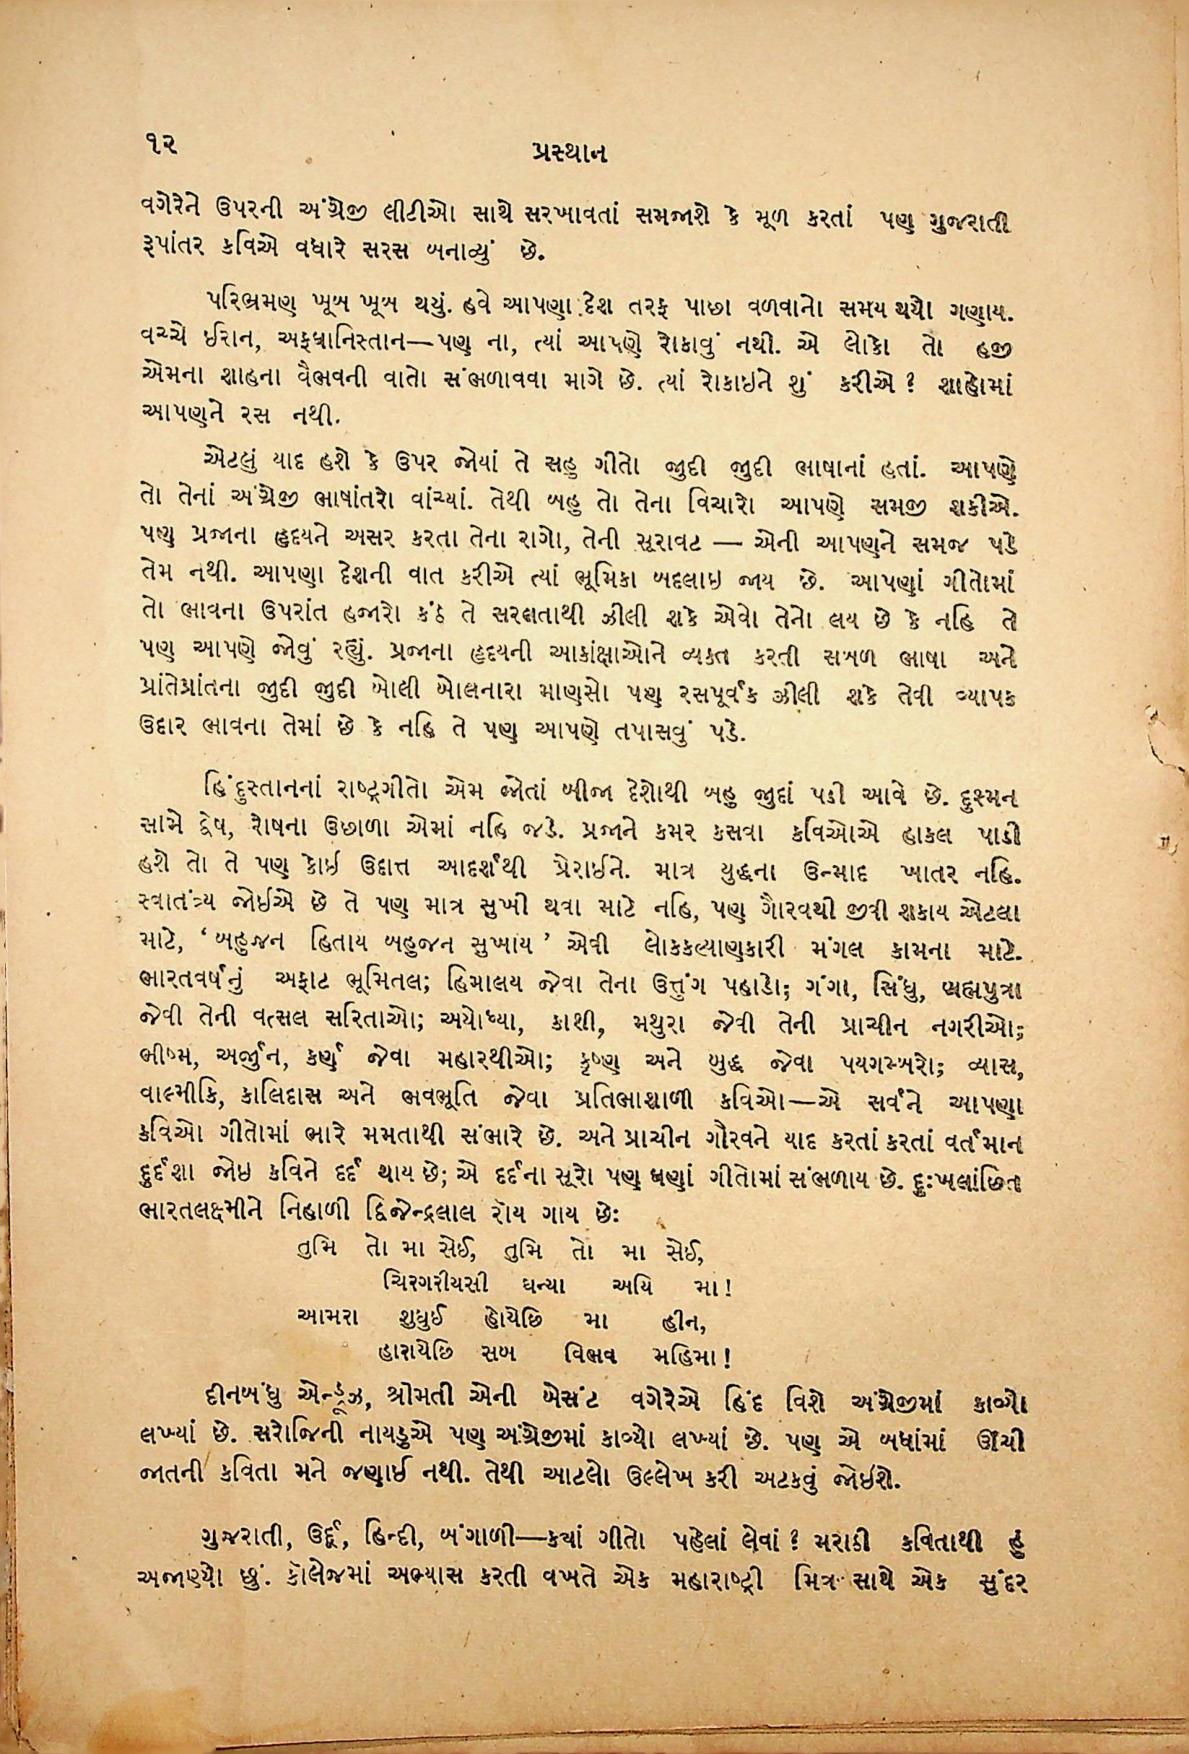 ૧૨
પ્રસ્થાન
વગેરેને ઉપરની અંગ્રેજી લીટીઓ સાથે સરખાવતાં સમજાશે કે મૂળ કરતાં પણ ગુજરાતી
રૂપાંતર કવિએ વધારે સરસ બનાવ્યું છે.
પરિભ્રમણ ખૂબ ખૂબ થયું. હવે આપણા દેશ તરફ પાછા વળવાનો સમય થયો ગણાય.
વચ્ચે ઈરાન, અફઘાનિસ્તાન—પણ ના, ત્યાં આપણે રોકાવું નથી. એ લોકો તો હજી
એમના શાહના વૈભવની વાતો સંભળાવવા માગે છે. ત્યાં રોકાઇને શું કરીએ? શાહોમાં
આપણને રસ નથી.
એટલું યાદ હશે કે ઉપર જોયાં તે સહુ ગીતો જુદી જુદી ભાષાનાં હતાં. આપણે
તો તેનાં અંગ્રેજી ભાષાંતરો વાંચ્યાં. તેથી બહુ તો તેના વિચારો આપણે સમજી શકીએ.
પણ પ્રજાના હૃદયને અસર કરતા તેના રાગો, તેની સૂરાવટ — એની આપણને સમજ પડે
તેમ નથી. આપણા દેશની વાત કરીએ ત્યાં ભૂમિકા બદલાઇ જાય છે. આપણાં ગીતોમાં
તો ભાવના ઉપરાંત હજારો કંઠે તે સરલતાથી ઝીલી શકે એવો તેનો લય છે કે નહિ તે
પણ આપણે જોવું રહ્યું. પ્રજાના હૃદયની આકાંક્ષાઓને વ્યક્ત કરતી સબળ ભાષા અને
પ્રાંતેપ્રાંતના જુદી જુદી બોલી બોલનારા માણસો પણ રસપૂર્વક ઝીલી શકે તેવી વ્યાપક
ઉદાર ભાવના તેમાં છે કે નહિ તે પણ આપણે તપાસવું પડે.
હિંદુસ્તાનનાં રાષ્ટ્રગીતો એમ જોતાં બીજા દેશોથી બહુ જુદાં પડી આવે છે. દુશ્મન
સામે દ્વેષ, રોષના ઉછાળા એમાં નહિ જડે. પ્રજાને કમર કસવા કવિઓએ હાકલ પાડી
હશે તો તે પણ કોઇ ઉદાત્ત આદર્શથી પ્રેરાઈને. માત્ર યુદ્ધના ઉન્માદ ખાતર નહિ.
સ્વાતંત્ર્ય જોઈએ છે તે પણ માત્ર સુખી થવા માટે નહિ, પણ ગૌરવથી જીવી શકાય એટલા
માટે, ‘બહુજન હિતાય બહુજન સુખાય’ એવી લોકકલ્યાણકારી મંગલ કામના માટે.
ભારતવર્ષનું અફાટ ભૂમિતલ; હિમાલય જેવા તેના ઉત્તુંગ પહાડો; ગંગા, સિંધુ, બ્રહ્મપુત્રા
જેવી તેની વત્સલ સરિતાઓ; અયોધ્યા, કાશી, મથુરા જેવી તેની પ્રાચીન નગરીઓ;
ભીષ્મ, અર્જુન, કર્ણ જેવા મહારથીઓ; કૃષ્ણ અને બુદ્ધ જેવા પયગમ્બરો; વ્યાસ,
વાલ્મીકિ, કાલિદાસ અને ભવભૂતિ જેવા પ્રતિભાશાળી કવિઓ—એ સર્વને આપણા
કવિઓ ગીતોમાં ભારે મમતાથી સંભારે છે. અને પ્રાચીન ગૌરવને યાદ કરતાં કરતાં વર્તમાન
દુર્દશા જોઇ કવિને દર્દ થાય છે; એ દર્દના સૂરો પણ ઘણાં ગીતોમાં સંભળાય છે. દુઃખલાંછિત
ભારતલક્ષ્મીને નિહાળી દ્વિજેન્દ્રલાલ રૉય ગાય છેઃ
તુમિ તો મા સેઈ, તુમિ તો મા સેઈ,
ચિરગરીયસી ધન્યા અયિ મા!
આમરા શુધુઈ હોયેછિ મા હીન,
હારાયેછિ સબ વિભવ મહિમા!
દીનબંધુ એન્ડ્રૂઝ, શ્રીમતી એની બેસંટ વગેરેએ હિંદ વિશે અંગ્રેજીમાં કાવ્યો
લખ્યાં છે. સરોજિની નાયડુએ પણ અંગ્રેજીમાં કાવ્યો લખ્યાં છે. પણ એ બધાંમાં ઊંચી
જાતની કવિતા મને જણાઈ નથી. તેથી આટલો ઉલ્લેખ કરી અટકવું જોઇશે.
ગુજરાતી, ઉર્દૂ, હિન્દી, બંગાળી—કયાં ગીતો પહેલાં લેવાં? મરાઠી કવિતાથી હું
અજાણ્યો છું. કૉલેજમાં અભ્યાસ કરતી વખતે એક મહારાષ્ટ્રી મિત્ર સાથે એક સુંદર